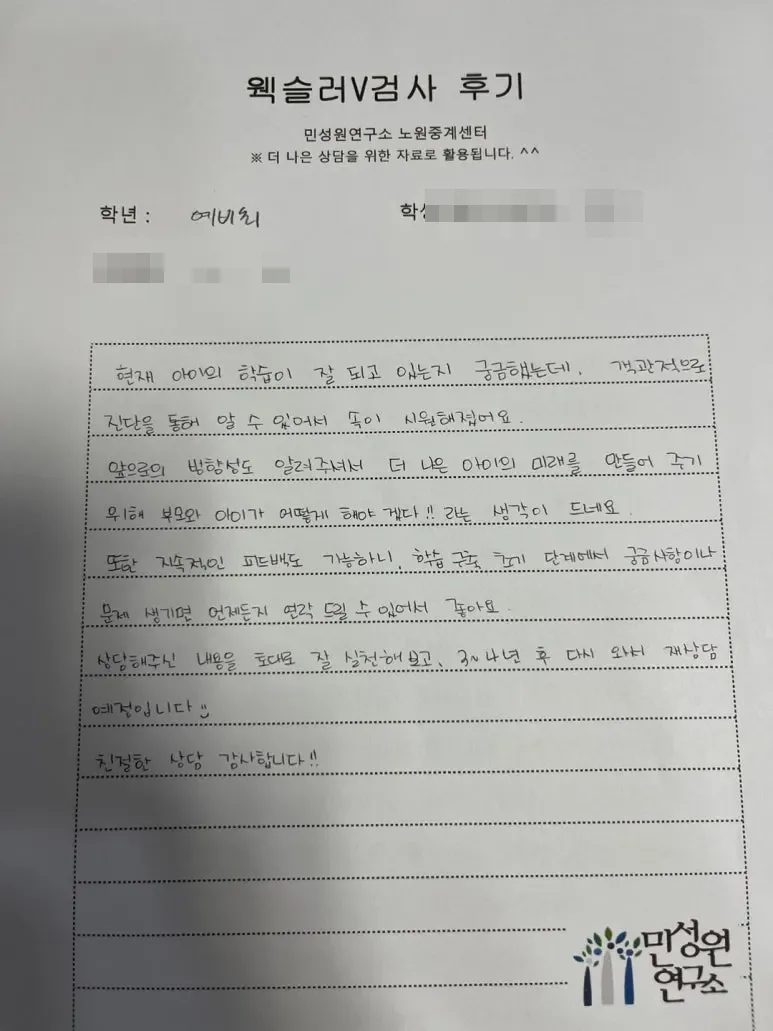 웩슬러V검사 후기
민성원연구소 노원중계센터
※ 더 나은 상담을 위한 자료로 활용됩니다. ^^
학년 : 예비초1
현재 아이의 학습이 잘 되고 있는지 궁금했는데, 객관적으로
진단을 통해 알 수 있어서 속이 시원해졌어요.
앞으로의 방향성도 알려주셔서 더 나은 아이의 미래를 만들어 주기
위해 부모와 아이가 어떻게 해야 겠다!! 라는 생각이 드네요.
또한 지속적인 피드백도 가능하니, 학습 구축 초기 단계에서 궁금사항이나
문제 생기면 언제든지 연락 드릴 수 있어서 좋아요.
상담해주신 내용을 토대로 잘 실천해보고, 3~4년 후 다시 와서 재상담
예정입니다
친절한 상담 감사합니다!!
민성원
연구소